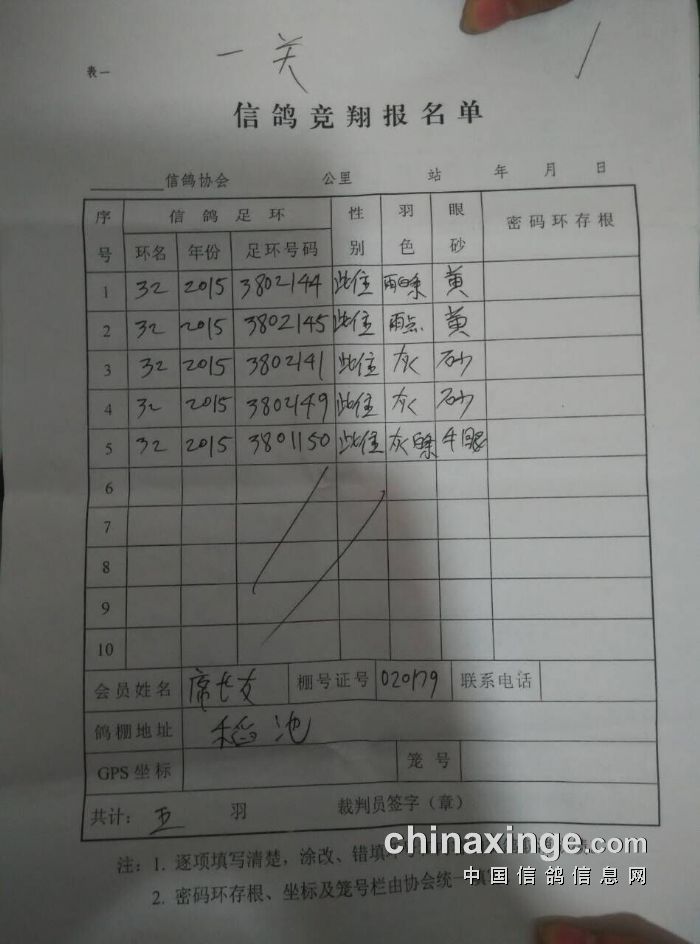 一关
表一
信鸽竞翔报名单
信鸽协会 公里 站 年 月 日
序号 信鸽足环 性别 羽色 眼砂 密码环存根
环名 年份 足环号码
1 32 2015 3802144 黄
2 32 2015 3802145 雨点 黄
3 32 2015 3802141 灰 砂
4 32 2015 3802149 灰 砂
5 32 2015 3801150 牛眼
6
7
8
9
10
会员姓名 席长友 棚号证号 020179 联系电话
鸽棚地址 稻池
GPS坐标 笼号
共计: 五 羽 裁判员签字(章)
注: 1. 逐项填写清楚, 涂改、错填
2. 密码环存根、坐标及笼号栏由协会统一填
chinaxinge.com
中国信鸽信息网